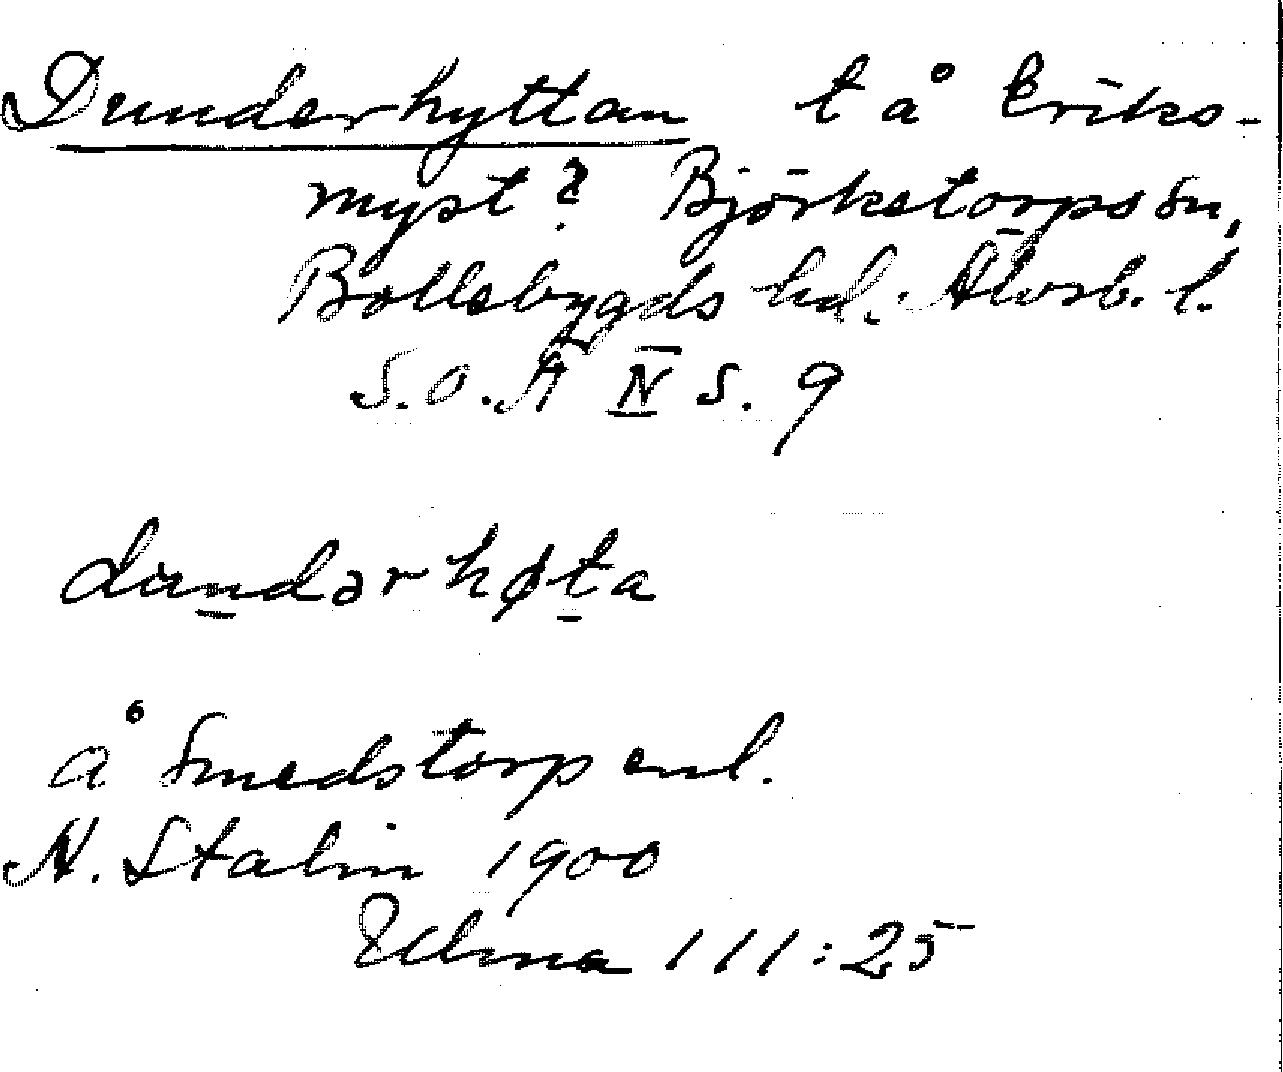 Dunderhyttan t å Eriks-
myst? Björketorps sn,
Bollebygds hd. Älvsb. l.
S.O.Ä IV S. 9
dundərhøta
å Smedstorp enl.
N. Stalin 1900
Edma 111:25